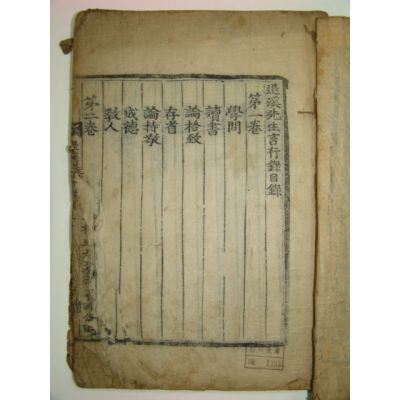 退溪先生言行錄目錄
第一卷
學問
讀書
論格致
存省
論持敬
成德
敎人
第二卷